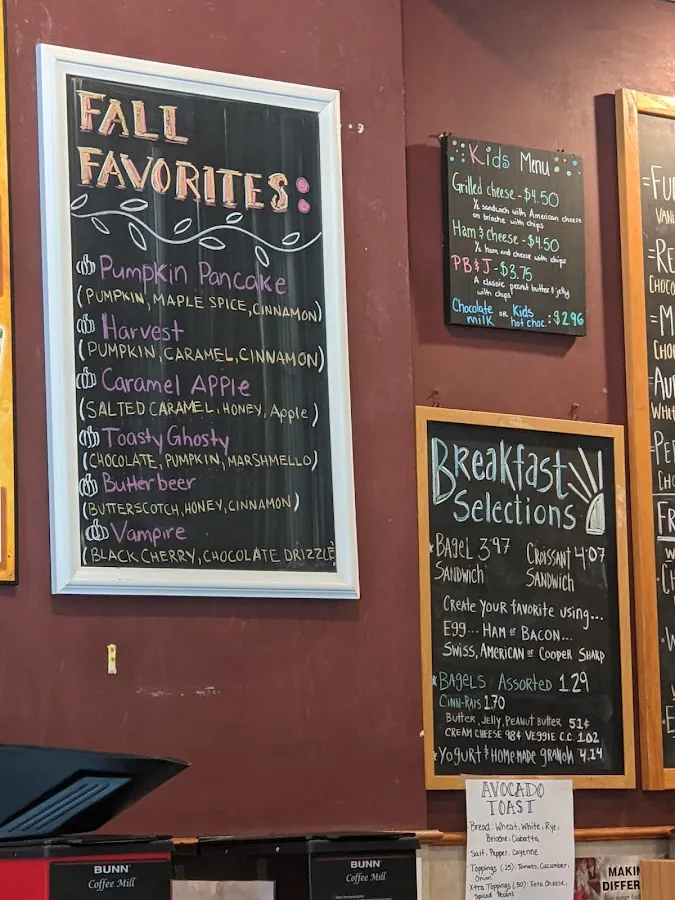 FALL
FAVORITES:
Pumpkin Pancake
(PUMPKIN, MAPLE SPICE, CINNAMON)
Harvest
(PUMPKIN, CARAMEL, CINNAMON)
Caramel APPle
(SALTED CARAMEL, HONEY, Apple)
Toasty Ghosty
(CHOCOLATE, PUMPKIN, MARSHMELLO)
Butterbeer
(BUTTERSCOTCH, HONEY, CINNAMON)
Vampire
(BLACK CHERRY, CHOCOLATE DRIZZLE
Kids Menu
Grilled cheese - $4.50
1/2 sandwich with American cheese
on brioche with chips
Ham & Cheese - $4.50
1/2 ham and cheese with chips
PB & J - $3.75
A classic peanut butter & jelly
with chips
Chocolate milk or Kids hot choc. : $2.96
Breakfast
Selections
BAGEL SANDWICH 3.97
CROISSANT SANDWICH 4.07
CREATE YOUR FAVORITE USING...
EGG... HAM or BACON...
SWISS, AMERICAN or COOPER SHARP
BAGELS ASSORTED 1.29
CINN-RAIS 1.70
BUTTER, JELLY, PEANUT BUTTER 51¢
CREAM CHEESE 98¢ VEGGIE C.C. 1.02
YOGURT & HOMEMADE GRANOLA 4.14
AVOCADO
TOAST
Bread: Wheat, White, Rye,
Brioche, Ciabatta
Salt, Pepper, Cayenne
Toppings (.25): Tomato, Cucumber,
Onion
Xtra Toppings (.50): Feta Cheese,
Spiced Pecans
BUNN
Coffee Mill
BUNN
Coffee Mill
MAKIN
DIFFER